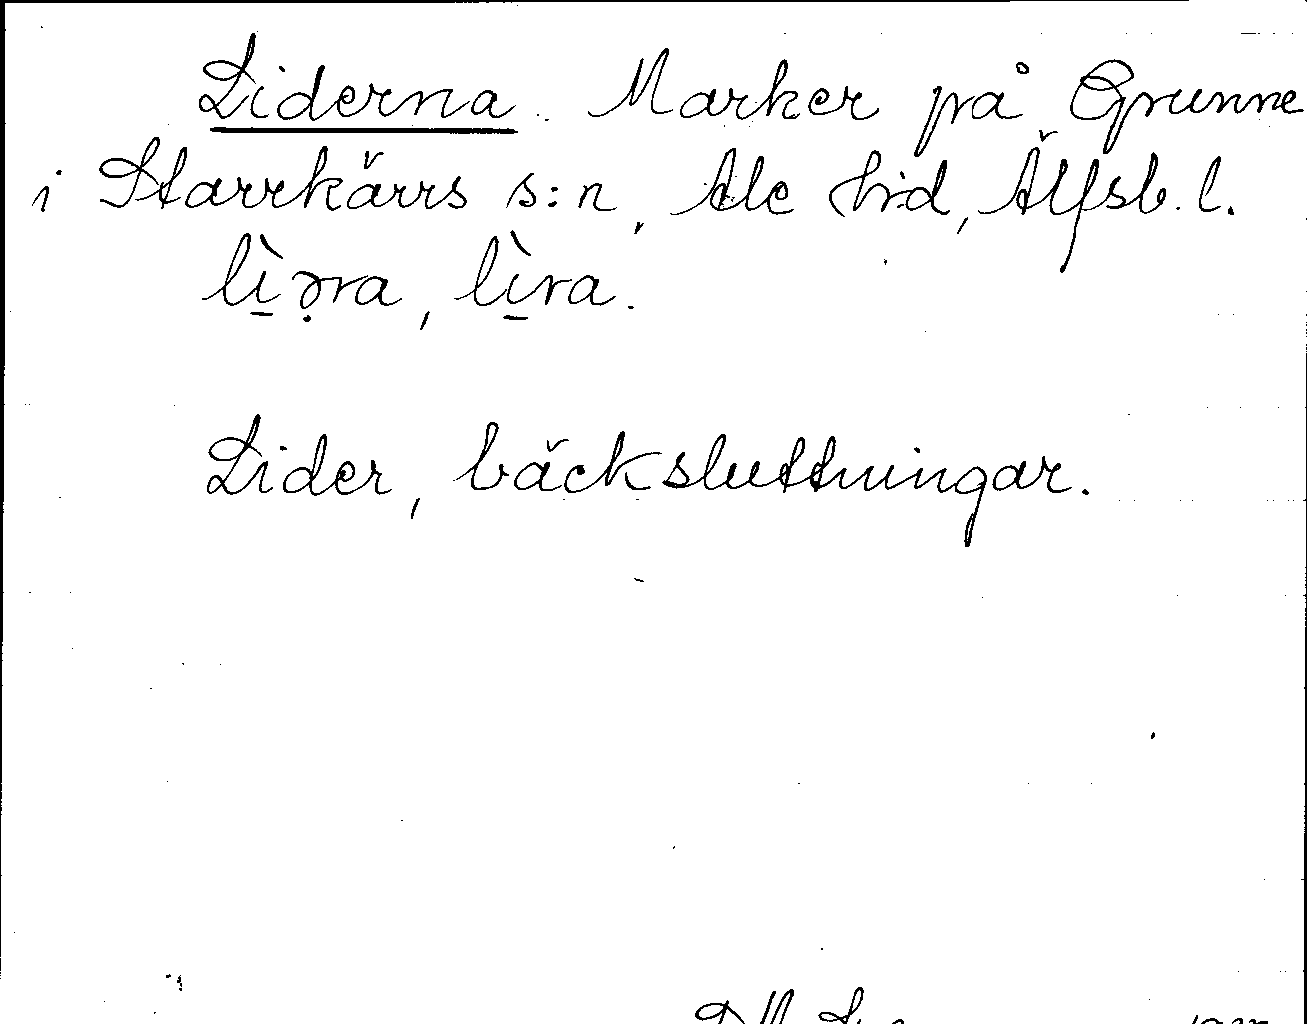 Liderna. Marker på Grunne
i Starrkärrs s:n, Ale hd, Älfsb. l.
lì̱ə̣ra, lì̱ra.
Lider, bäcksluttningar.